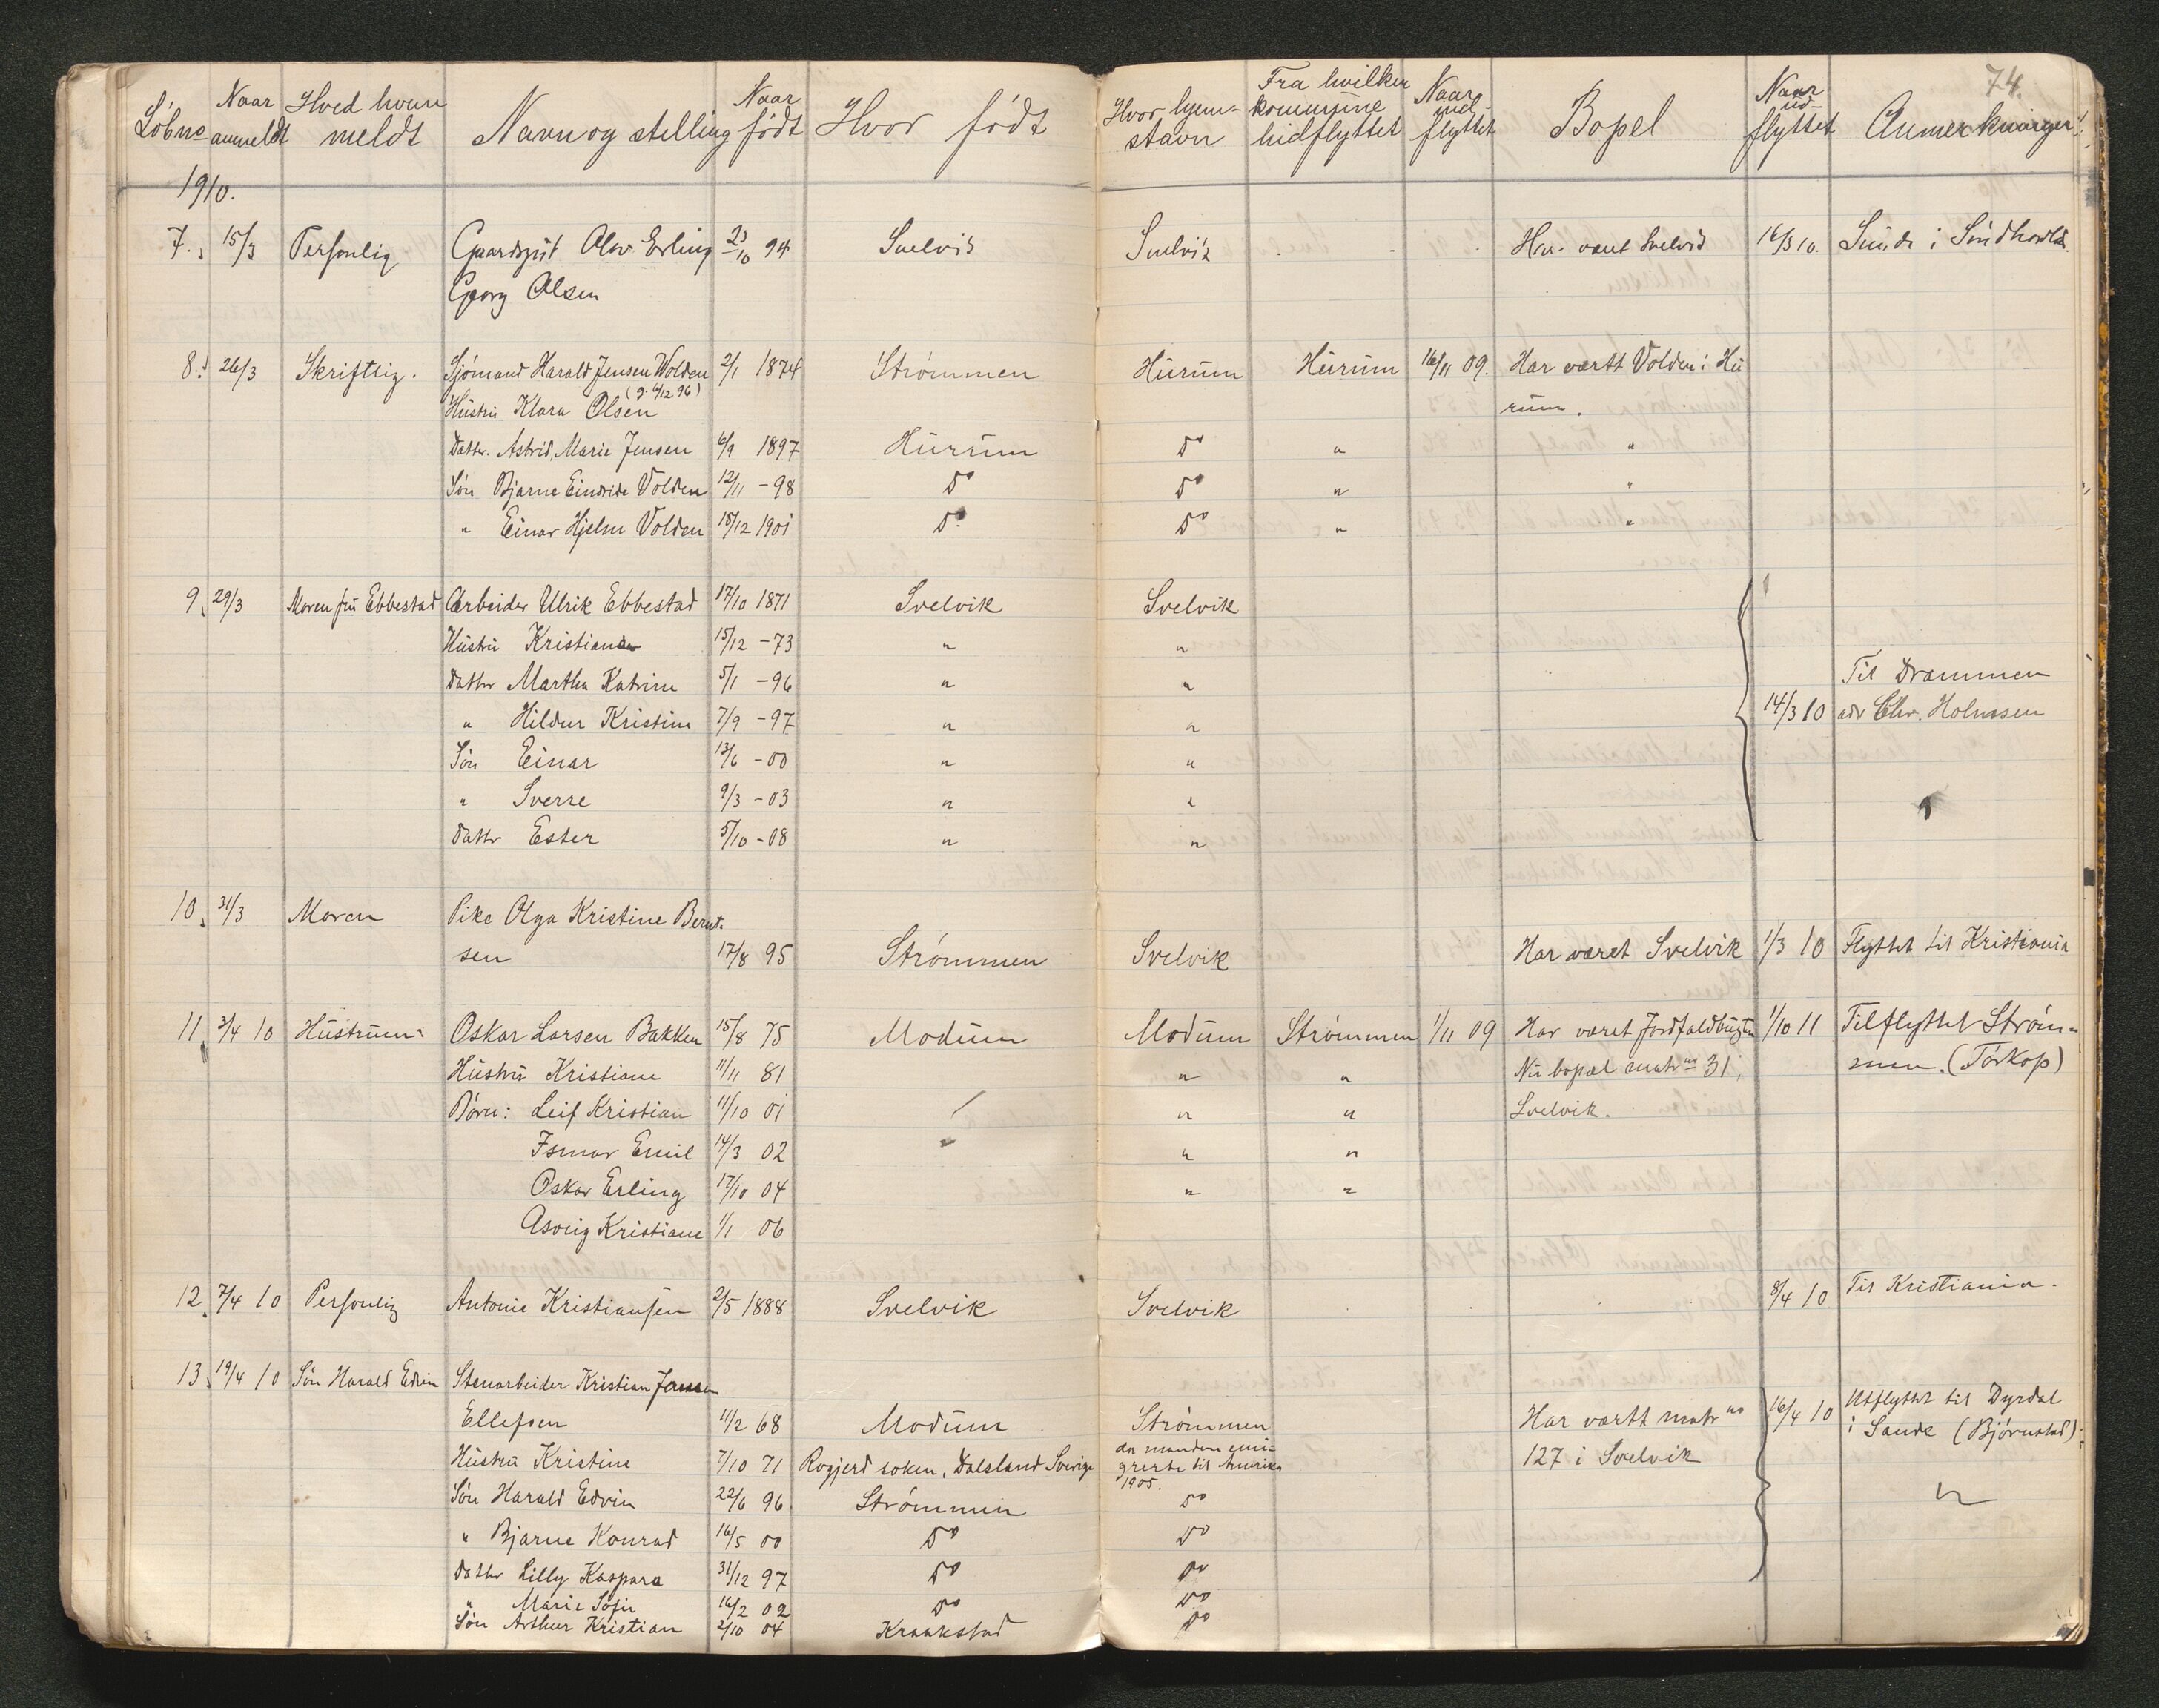 74.
Løbno Naar anmeldt Hved hvem meldt Navn og stilling Naar født Hvor født Hvor hjem-stavn Fra hvilken kommune hidflyttet Naar ind-flyttet Bopel Naar ud-flyttet Anmerkninger
1910.
7. 15/3 Personlig Gaardsgut Olav Erling 23/10 94 Svelvik Svelvik Har været Svelvik 16/3 10. Sunde i Søndhordld.
Georg Olsen
8. 26/3 Skriftlig. Sjømand Harald Jensen Wolden 2/1 1874 Strømmen Hurum Hurum 16/11 09. Har vært Volden i Hu
(g. 6/12 96)
Hustru Klara Olsen rum.
Datter. Astrid, Marie Jensen 6/9 1897 Hurum Do " "
Søn Bjarne Eindride Volden 12/11 - 98 Do Do " "
" Einar Hjelm Volden 18/12 1901 Do Do " "
9. 29/3 Moren fru Ebbestad Arbeider Ulrik Ebbestad 17/10 1871 Svelvik Svelvik
Hustru Kristiane 15/12 - 73 " "
Datter Martha Katrine 5/1 - 96 " " Til Drammen
" Hildur Kristine 7/9 - 97 " " 14/3 10 adr Chr. Holmsen
Søn Einar 13/6 - 00 " "
" Sverre 9/3 - 03 " "
Dattr Ester 5/10 - 08 " "
10. 31/3 Moren Pike Olga Kristine Bernt-
sen 17/8 95 Strømmen Svelvik Har været Svelvik 1/3 10 Flyttet til Kristiania
11. 3/4 10 Hustruen Oskar Larsen Bakken 15/8 75 Modum Modum Strømmen 1/11 09 Har været Jordfaldbugten 1/10 11 Tilflyttet Strøm-
Hustru Kristiane 11/11 81 " " Nu bopæl matr no 31, men. (Tørkop)
Børn: Leif Kristian 11/10 01 " " Svelvik.
Ismar Emil 14/3 02 " "
Oskar Erling 17/10 04 " "
Asveig Kristiane 1/1 06
12. 7/4 10 Personlig Antonie Kristiansen 2/5 1888 Svelvik Svelvik 8/4 10 Til Kristiania.
13. 19/4 10 Søn Harald Edvin Stenarbeider Kristian Jensen
Ellefsen 11/2 68 Modum Strømmen Har vært matr no 16/4 10 Utflyttet til Dyrdal
da manden emi-
Hustru Kristine 7/10 71 Rogjerd soken, Dalsland Sverige grerte til Amerika 127 i Svelvik i Sande (Bjørnstad).
1905.
Søn Harald Edvin 22/6 96 Strømmen Do "
" Bjarne Konrad 16/5 00 Do Do
Datter Lilly Kaspara 31/12 97 Do Do
" Marie Sofie 16/2 02 Do Do
Søn Arthur Kristian 2/10 04 Kraakstad Do